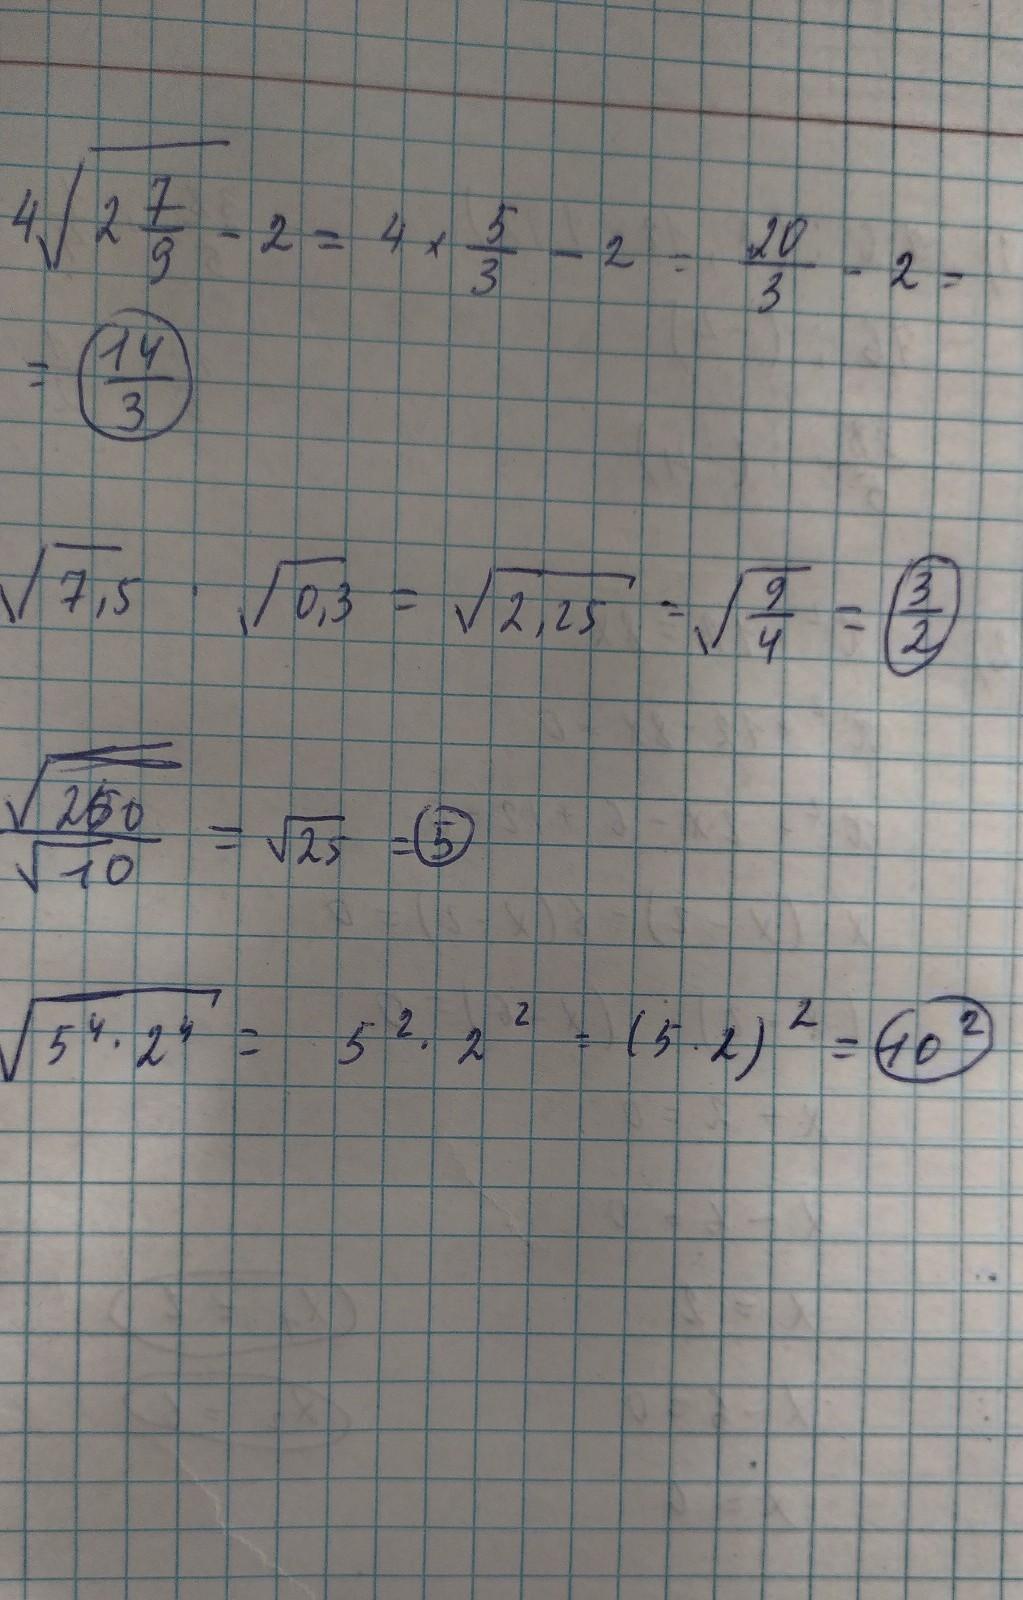 4√(2 7/9) - 2 = 4 × 5/3 - 2 = 20/3 - 2 =
= 14/3
√7,5 · √0,3 = √2,25 = √(9/4) = 3/2
√250/√10 = √25 = 5
√(5⁴ · 2⁴) = 5² · 2² = (5 · 2)² = 10²